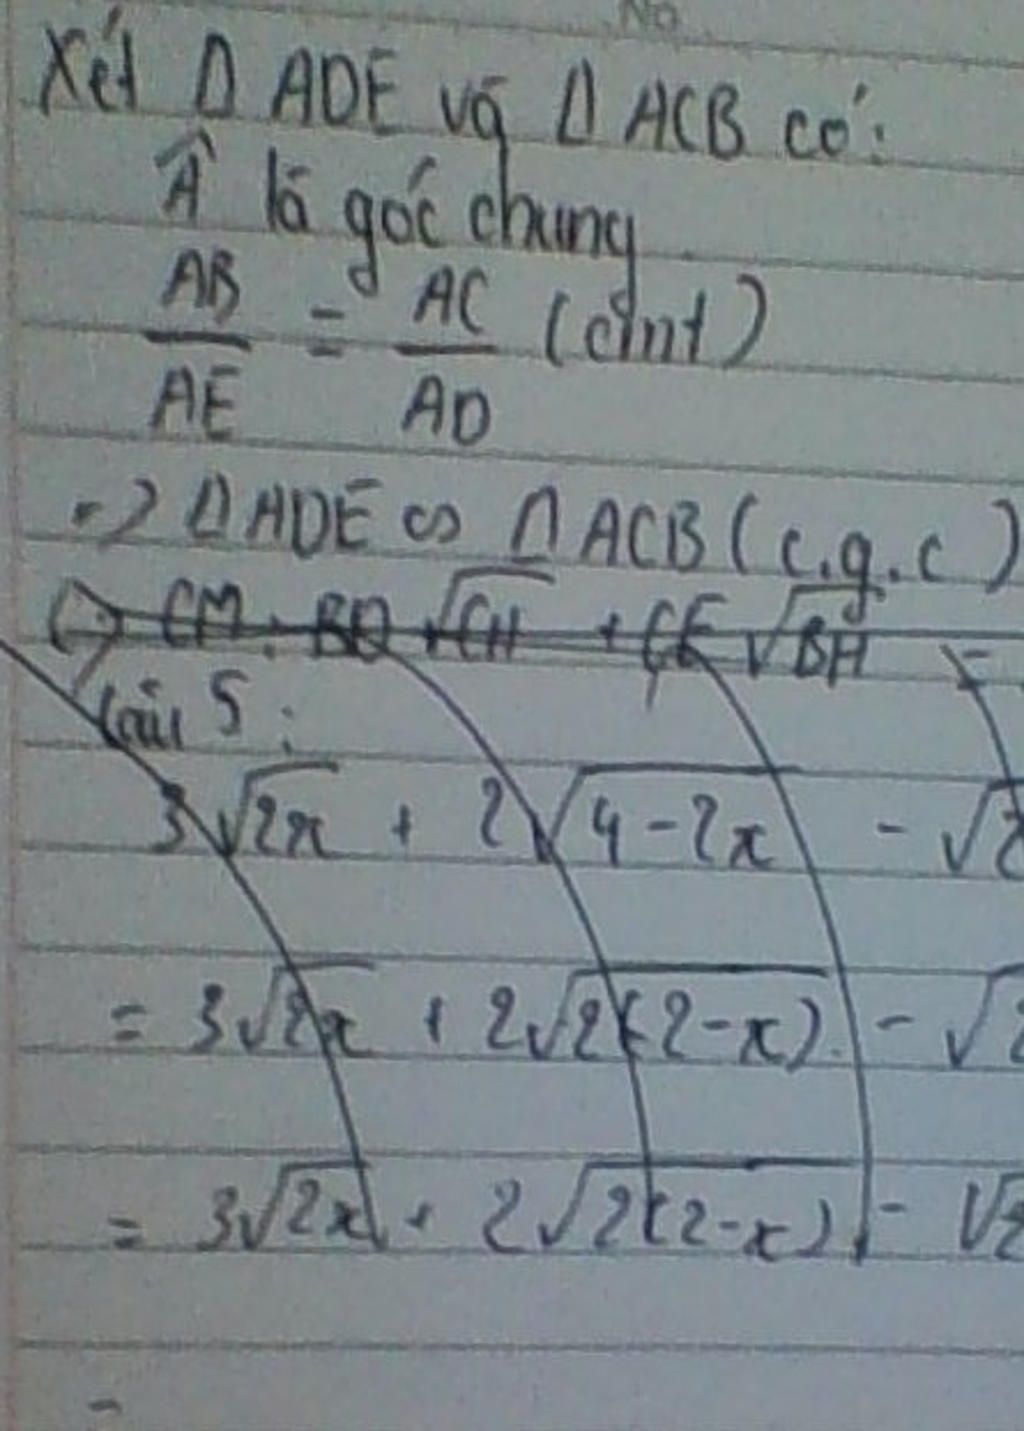 No
Xét Δ ADE và Δ ACB có:
Â là góc chung
AB/AE = AC/AD (cmt)
=> Δ ADE ∽ Δ ACB (c.g.c)
CM. BD √CH + CE √BH =
Câu 5:
3√2x + 2√4-2x - √
= 3√2x + 2√2(2-x) - √2
= 3√2x + 2√2(2-x) - √2
=